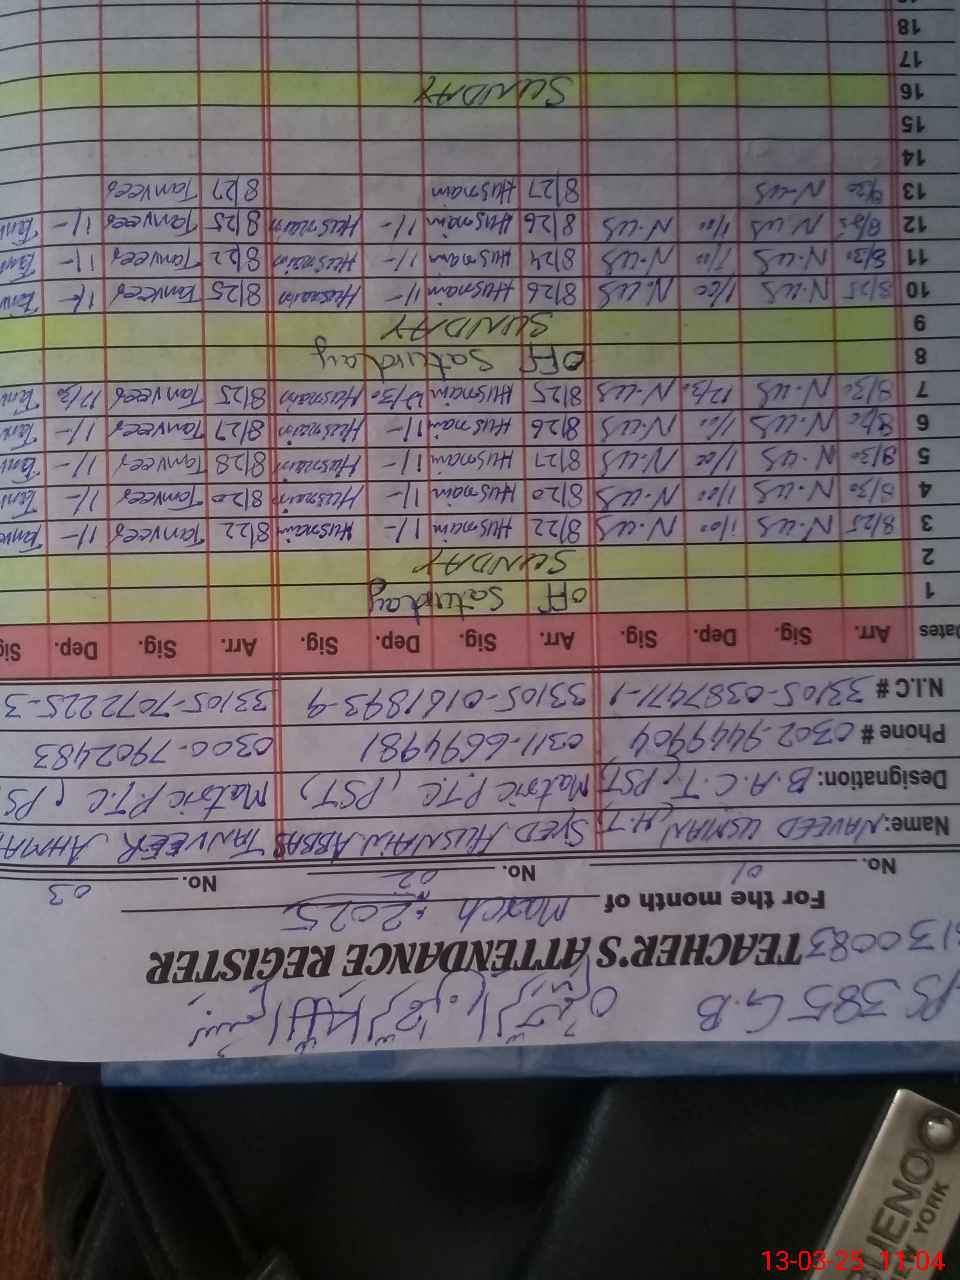 PS 385 G.B
TEACHER'S ATTENDANCE REGISTER
For the month of March 2025
No. 01 No. 02 No. 03
Name: NAVEED USMAN (H.T) SYED HUSNAIN ABBAS TANVEER AHMA
Designation: B.A.C.T, (PST) Matric P.T.C (PST) Matric P.T.C (PS
Phone # 0302-9449904 0311-6694981 0300-7902483
N.I.C # 33105-0387471-1 33105-0161893-9 33105-7072225-3
Dates Arr. Sig. Dep. Sig. Arr. Sig. Dep. Sig. Arr. Sig. Dep. Sig
1 OFF Saturday
2 SUNDAY
3 8/25 N-US 1/00 N-US 8/22 Husnain 1/- Husnain 8/22 Tanveer 1/-
4 8/30 N-US 1/00 N-US 8/20 Husnain 1/- Husnain 8/20 Tanveer 1/-
5 8/30 N-US 1/00 N-US 8/27 Husnain 1/- Husnain 8/28 Tanveer 1/-
6 N-US 1/00 N-US 8/26 Husnain 1/- Husnain 8/27 Tanveer 1/-
7 8/30 N-US 12/30 N-US 8/25 Husnain 12/30 Husnain 8/25 Tanveer 12/30
8 OFF Saturday
9 SUNDAY
10 8/25 N-US 1/00 N-US 8/26 Husnain 1/- Husnain 8/25 Tanveer 1/-
11 8/30 N-US 1/00 N-US 8/24 Husnain 1/- Husnain 8/22 Tanveer 1/-
12 N-US 1/00 N-US 8/26 Husnain 1/- Husnain 8/25 Tanveer 1/-
13 8/30 N-US 8/27 Husnain 8/27 Tanveer
14
15
16 SUNDAY
17
18
NEW YORK
13-03-25 11:04